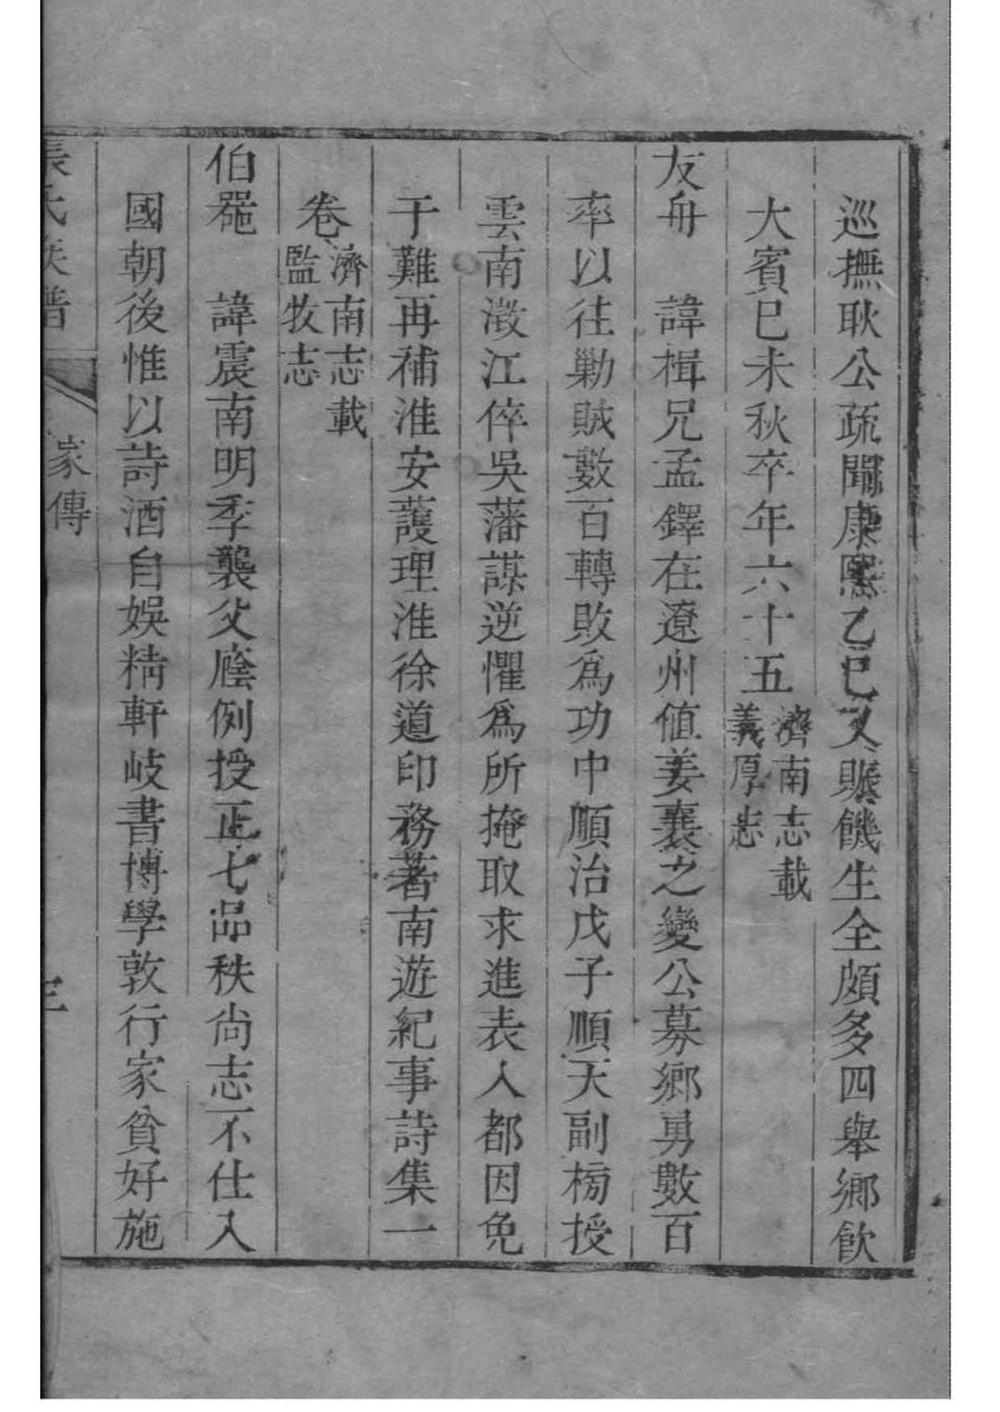 巡撫耿公疏聞康熙乙巳又賑饑生全頗多四舉鄉飲
大賓巳未秋卒年六十五濟南志載義厚志
友舟 諱楫兄孟鐸在遼州値姜襄之變公募鄉勇數百
率以往勦賊數百轉敗爲功中順治戊子順天副榜授
雲南澂江倅吳藩謀逆懼爲所掩取求進表入都因免
于難再補淮安護理淮徐道印務著南遊紀事詩集一
卷濟南志載監牧志
伯罷 諱震南明季襲父廕例授正七品秩尙志不仕入
國朝後惟以詩酒自娛精軒岐書博學敦行家貧好施
張氏族譜 家傳